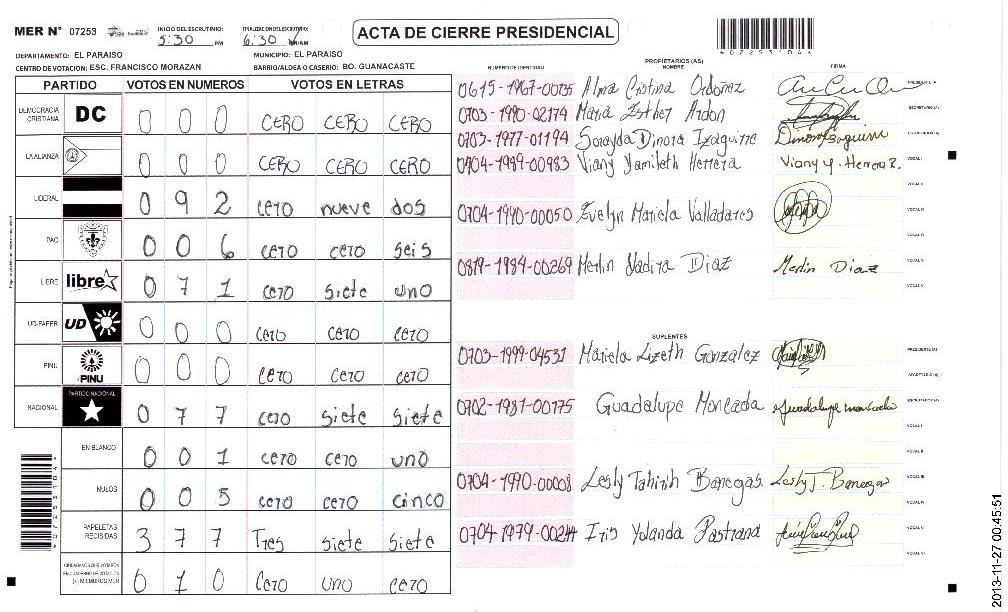 MER N° 07253 INICIO DEL ESCRUTINIO: 5:30 PM FINALIZACION DEL ESCRUTINIO: 6:30 ACTA DE CIERRE PRESIDENCIAL
DEPARTAMENTO: EL PARAISO MUNICIPIO: EL PARAISO
CENTRO DE VOTACION: ESC. FRANCISCO MORAZAN BARRIO/ALDEA O CASERIO: BO. GUANACASTE
PARTIDO VOTOS EN NUMEROS VOTOS EN LETRAS
DEMOCRACIA CRISTIANA DC 0 0 0 CERO CERO CERO
LA ALIANZA 0 0 0 CERO CERO CERO
LIBERAL 0 9 2 cero nueve dos
PAC 0 0 6 cero cero seis
LIBRE libre 0 7 1 cero siete uno
UD-FAPER UD 0 0 0 cero cero cero
PINU PINU 0 0 0 cero cero cero
NACIONAL PARTIDO NACIONAL 0 7 7 cero siete siete
EN BLANCO 0 0 1 cero cero uno
NULOS 0 0 5 cero cero cinco
PAPELETAS RECIBIDAS 3 7 7 Tres siete siete
CIUDADANOS QUE VOTARON EN CUADERNO DE VOTACION (+) MIEMBROS MER 0 1 0 cero uno cero
NUMERO DE IDENTIDAD PROPIETARIOS (AS) NOMBRE FIRMA
0615-1967-00735 Alma Cristina Ordoñez PRESIDENTE (A)
0703-1990-02174 Maria Esther Ardon SECRETARIO (A)
0703-1977-01194 Sorayda Dinora Izaguirre ESCRUTADOR (A)
0704-1989-00983 Viany Yamileth Herrera Viany Y. Herrera R. VOCAL I
VOCAL II
0704-1990-00050 Evelyn Mariela Valladares VOCAL III
VOCAL IV
0819-1984-00269 Merlin Yadira Diaz Merlin Diaz VOCAL V
VOCAL VI
SUPLENTES
0703-1999-04531 Mariela Lizeth Gonzalez PRESIDENTE (A)
SECRETARIO (A)
0702-1981-00175 Guadalupe Moncada Guadalupe moncada ESCRUTADOR (A)
VOCAL I
VOCAL II
0704-1990-00008 Lesly Tahirih Banegas Lesly T. Banegas VOCAL III
VOCAL IV
0704-1979-00244 Iris Yolanda Pastrana VOCAL V
VOCAL VI
2013-11-27 00:45:51